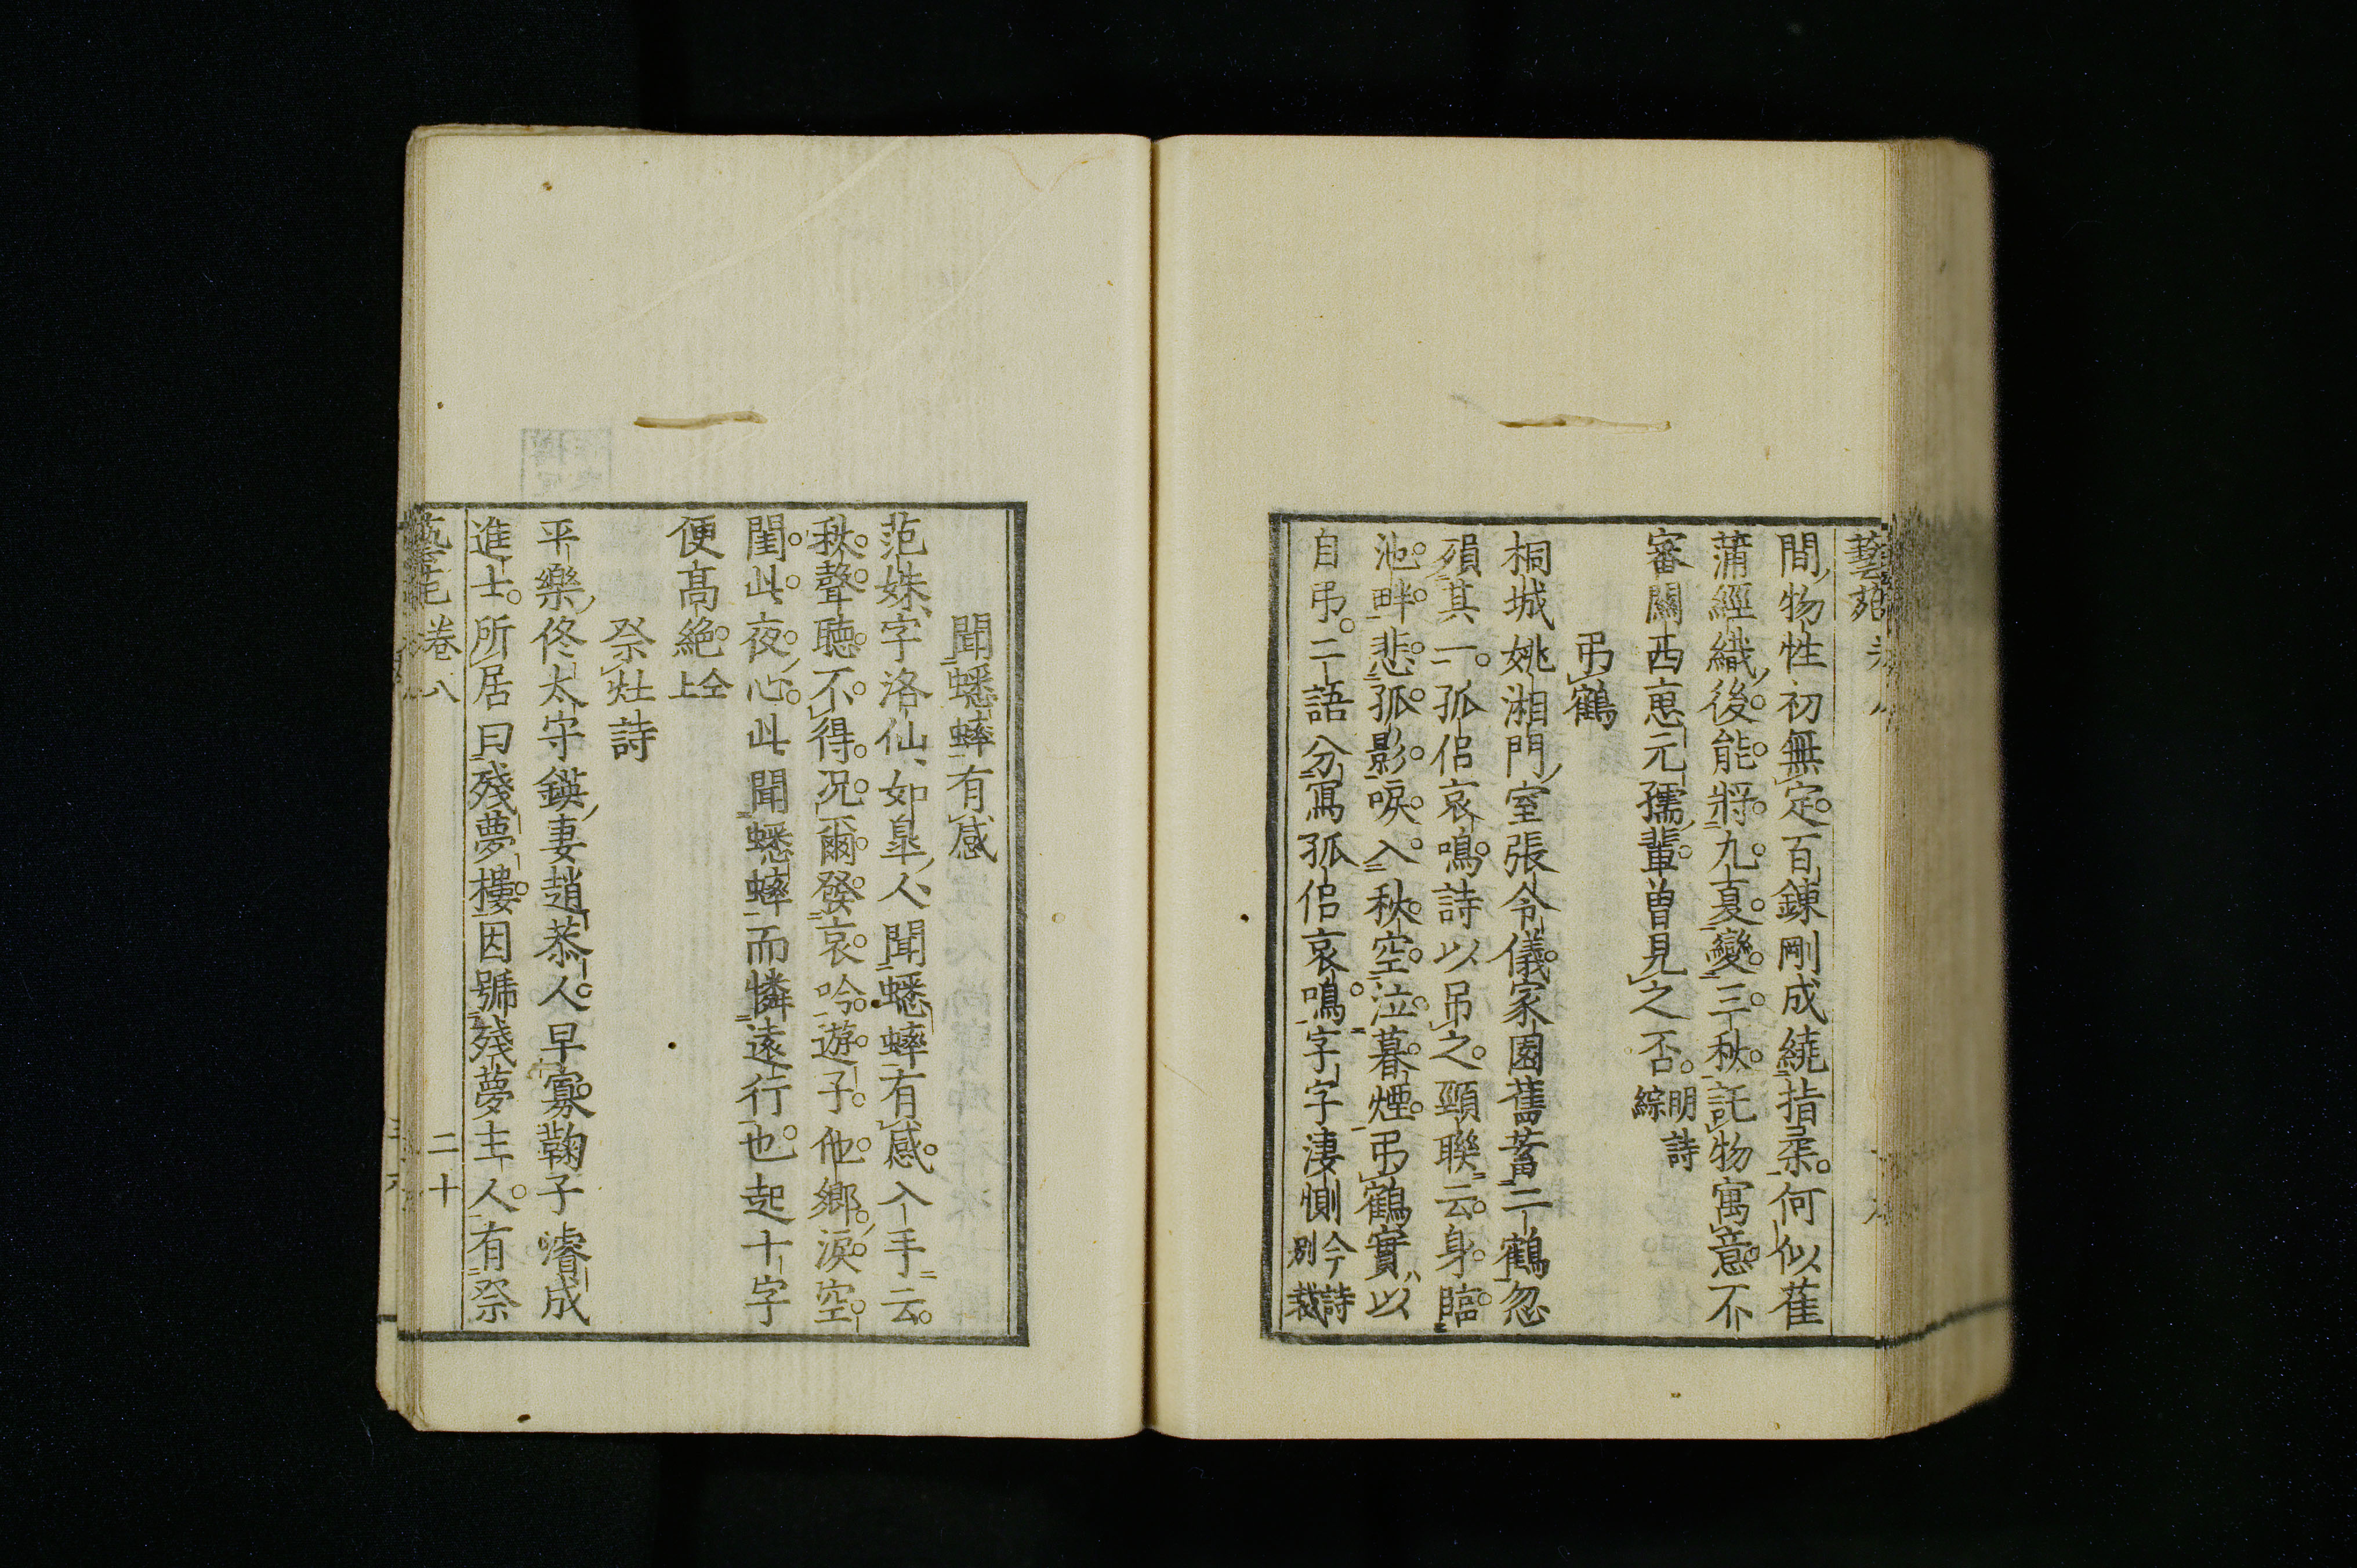 藝苑
間物性初無定百錬剛成繞指柔何似萑
蒲經織後能將九夏變三秋託物寓意不
審關西惠元孺輩曽見之否明詩綜
弔鶴
桐城姚湘門室張令儀家園舊蓄二鶴忽
殞其一孤侣哀鳴詩以吊之頸聯云身臨
池畔悲孤影唳入秋空泣暮煙弔鶴實以
自弔二語分寫孤侣哀鳴字字淒惻今詩別裁
聞蟋蟀有感
范姝字洛仙如皐人聞蟋蟀有感入手云
秋聲聽不得况爾發哀吟遊子他鄉淚空
閨此夜心此聞蟋蟀而憐遠行也起十字
便髙絶仝上
祭灶詩
平樂佟太守鍈妻趙恭人早寡鞠子濬成
進士所居曰殘夢樓因號殘夢主人有祭
藝苑 卷八 二十